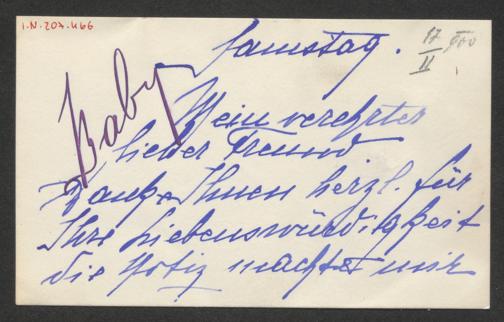 I.N. 207.466
Samstag. 17
II
Baby
Mein verehrter
lieber Freund
Danke Ihnen herzl. für
Ihre Liebenswürdigkeit
die Notiz machte mir